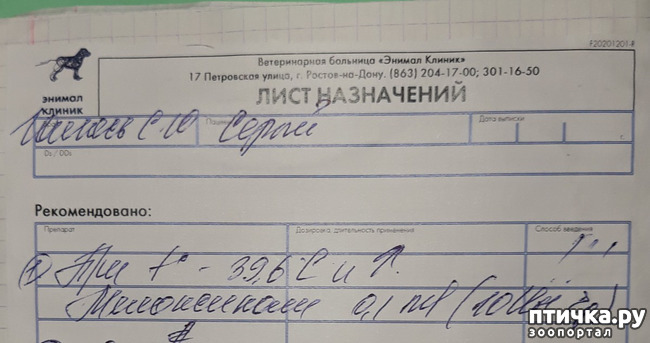 F20201201-F
Ветеринарная больница «Энимал Клиник»
17 Петровская улица, г. Ростов-на-Дону. (863) 204-17-00; 301-16-50
ЭНИМАЛ
КЛИНИК
ЛИСТ НАЗНАЧЕНИЙ
Дата выписки
С.Ю Серый
Ds / DDs
Рекомендовано:
Препарат Дозировка, длительность применения Способ введения
① При t° - 39,6°С и ↑
0,1 мл
птичка.ру
зоопортал